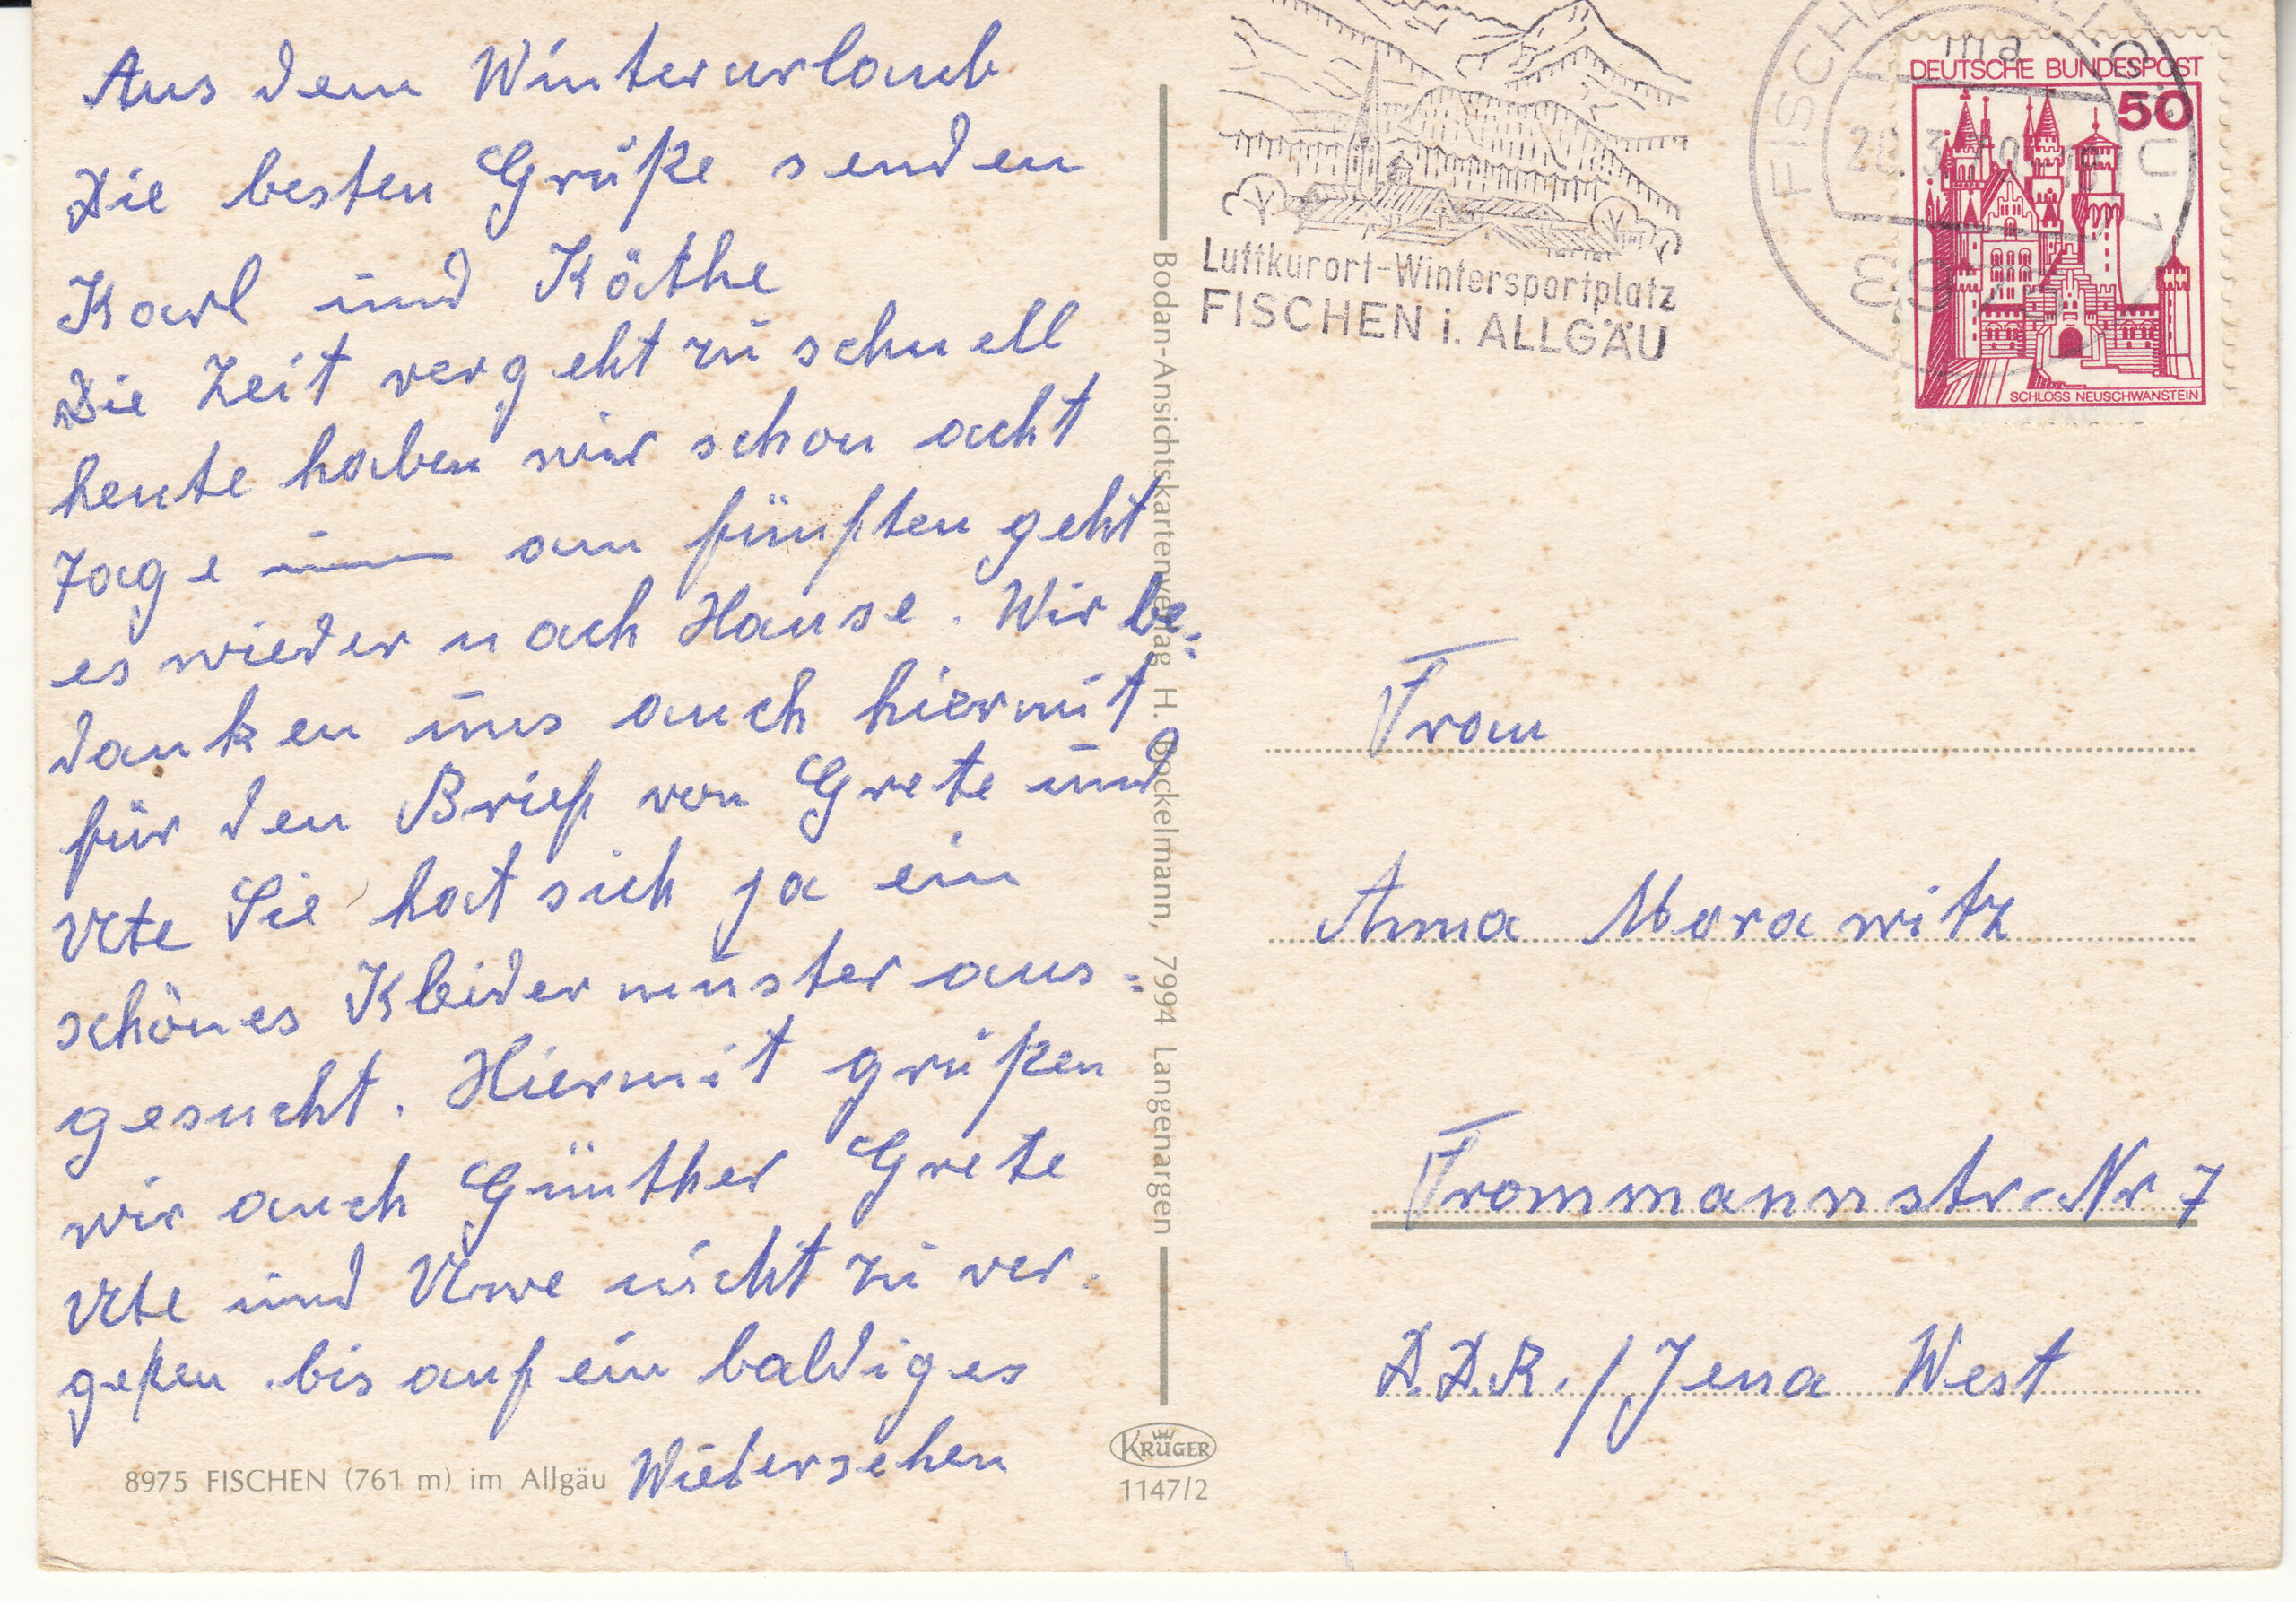 Aus dem Winterurlaub
Die besten Grüße senden
Karl und Käthe
Die Zeit vergeht zu schnell
heute haben wir schon acht
Tage am fünften geht
es wieder nach Hause. Wir be-
danken uns auch hiermit
für den Brief von Grete und
Ute Sie hat sich ja ein
schönes Kleidermuster aus-
gesucht. Hiermit grüßen
wir auch Günther Grete
Ute und Uwe nicht zu ver-
geßen bis auf ein baldiges
Wiedersehen
8975 FISCHEN (761 m) im Allgäu
Bodan-Ansichtskartenverlag H. Bockelmann, 7994 Langenargen
KRÜGER
1147/2
Luftkurort-Wintersportplatz
FISCHEN i. ALLGÄU
DEUTSCHE BUNDESPOST
50
SCHLOSS NEUSCHWANSTEIN
Frau
Anna Morawitz
Frommannstr. Nr 7
D.D.R./Jena West